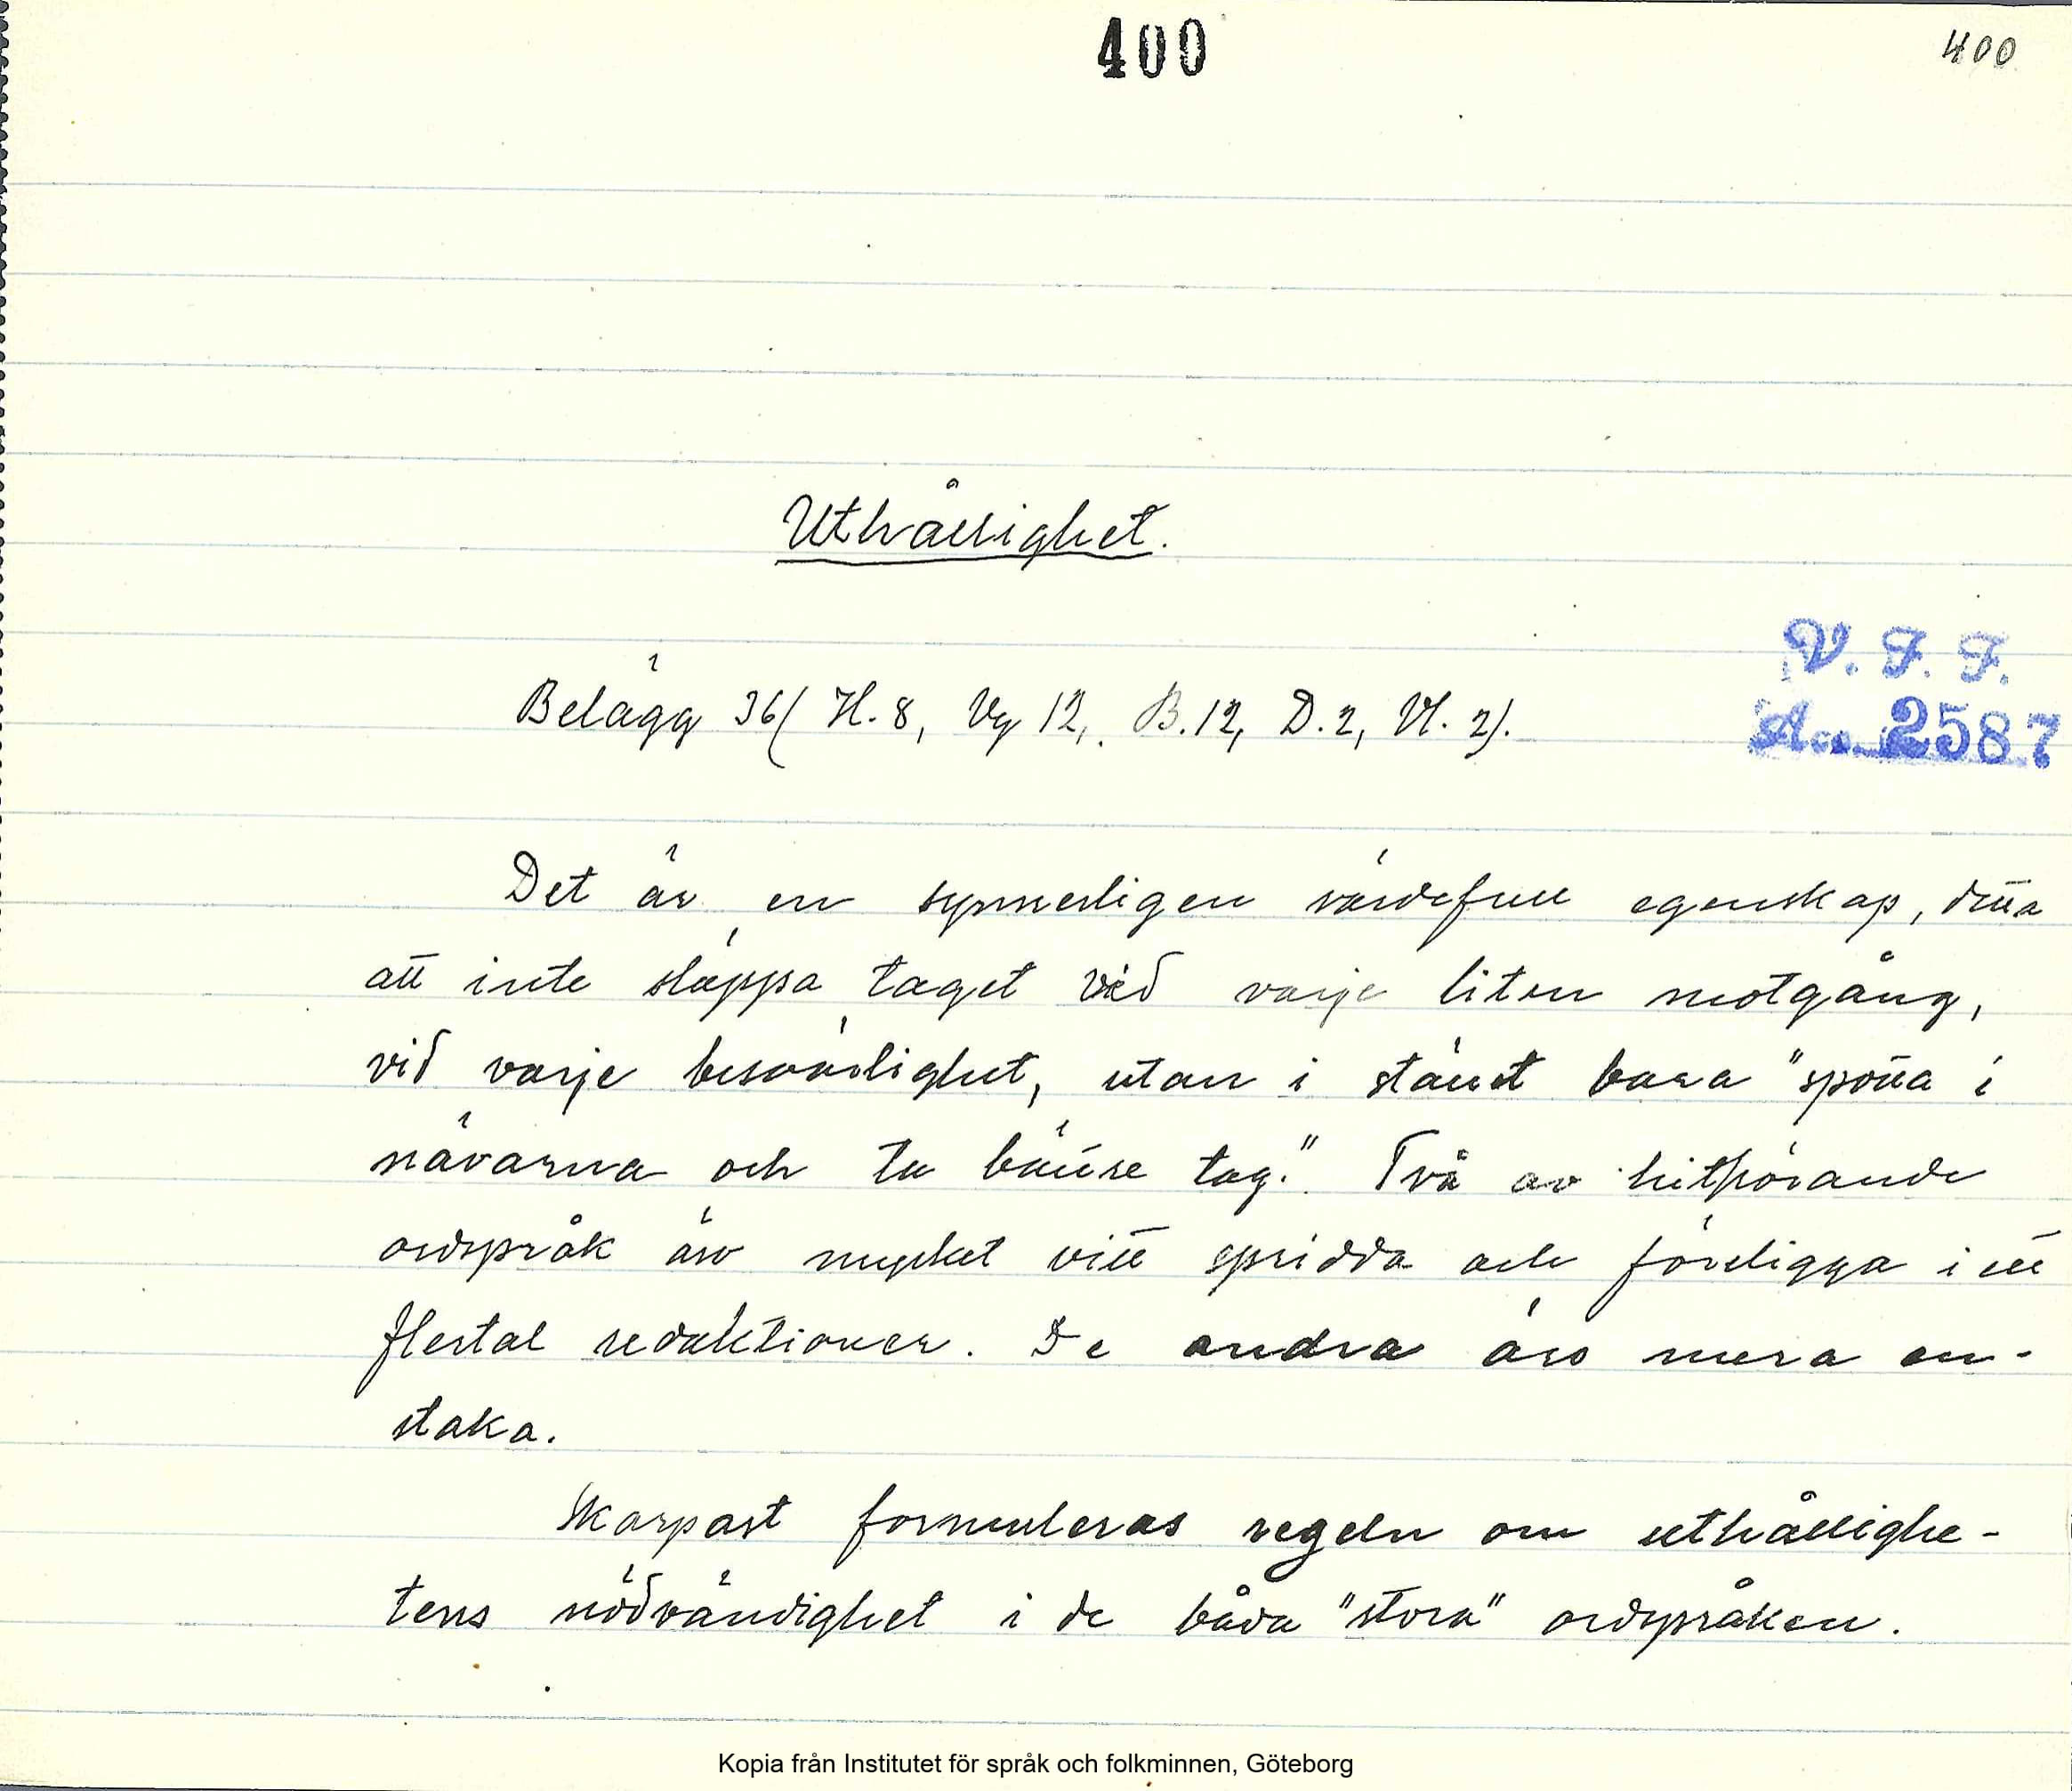 400
400
Uthållighet.
Belägg 36 (H. 8, Vg 12, B. 12, D. 2, Vl. 2).
V. F. F.
Acc. 2587
Det är en synnerligen värdefull egenskap, detta
att inte släppa taget vid varje liten motgång,
vid varje besvärlighet, utan i stället bara "spotta i
nävarna och ta bättre tag." Två av hithörande
ordspråk äro mycket vitt spridda och föreligga i ett
flertal redaktioner. De andra äro mera en-
staka.
Skarpast formuleras regeln om uthållighe-
tens nödvändighet i de båda "stora" ordspråken.
Kopia från Institutet för språk och folkminnen, Göteborg